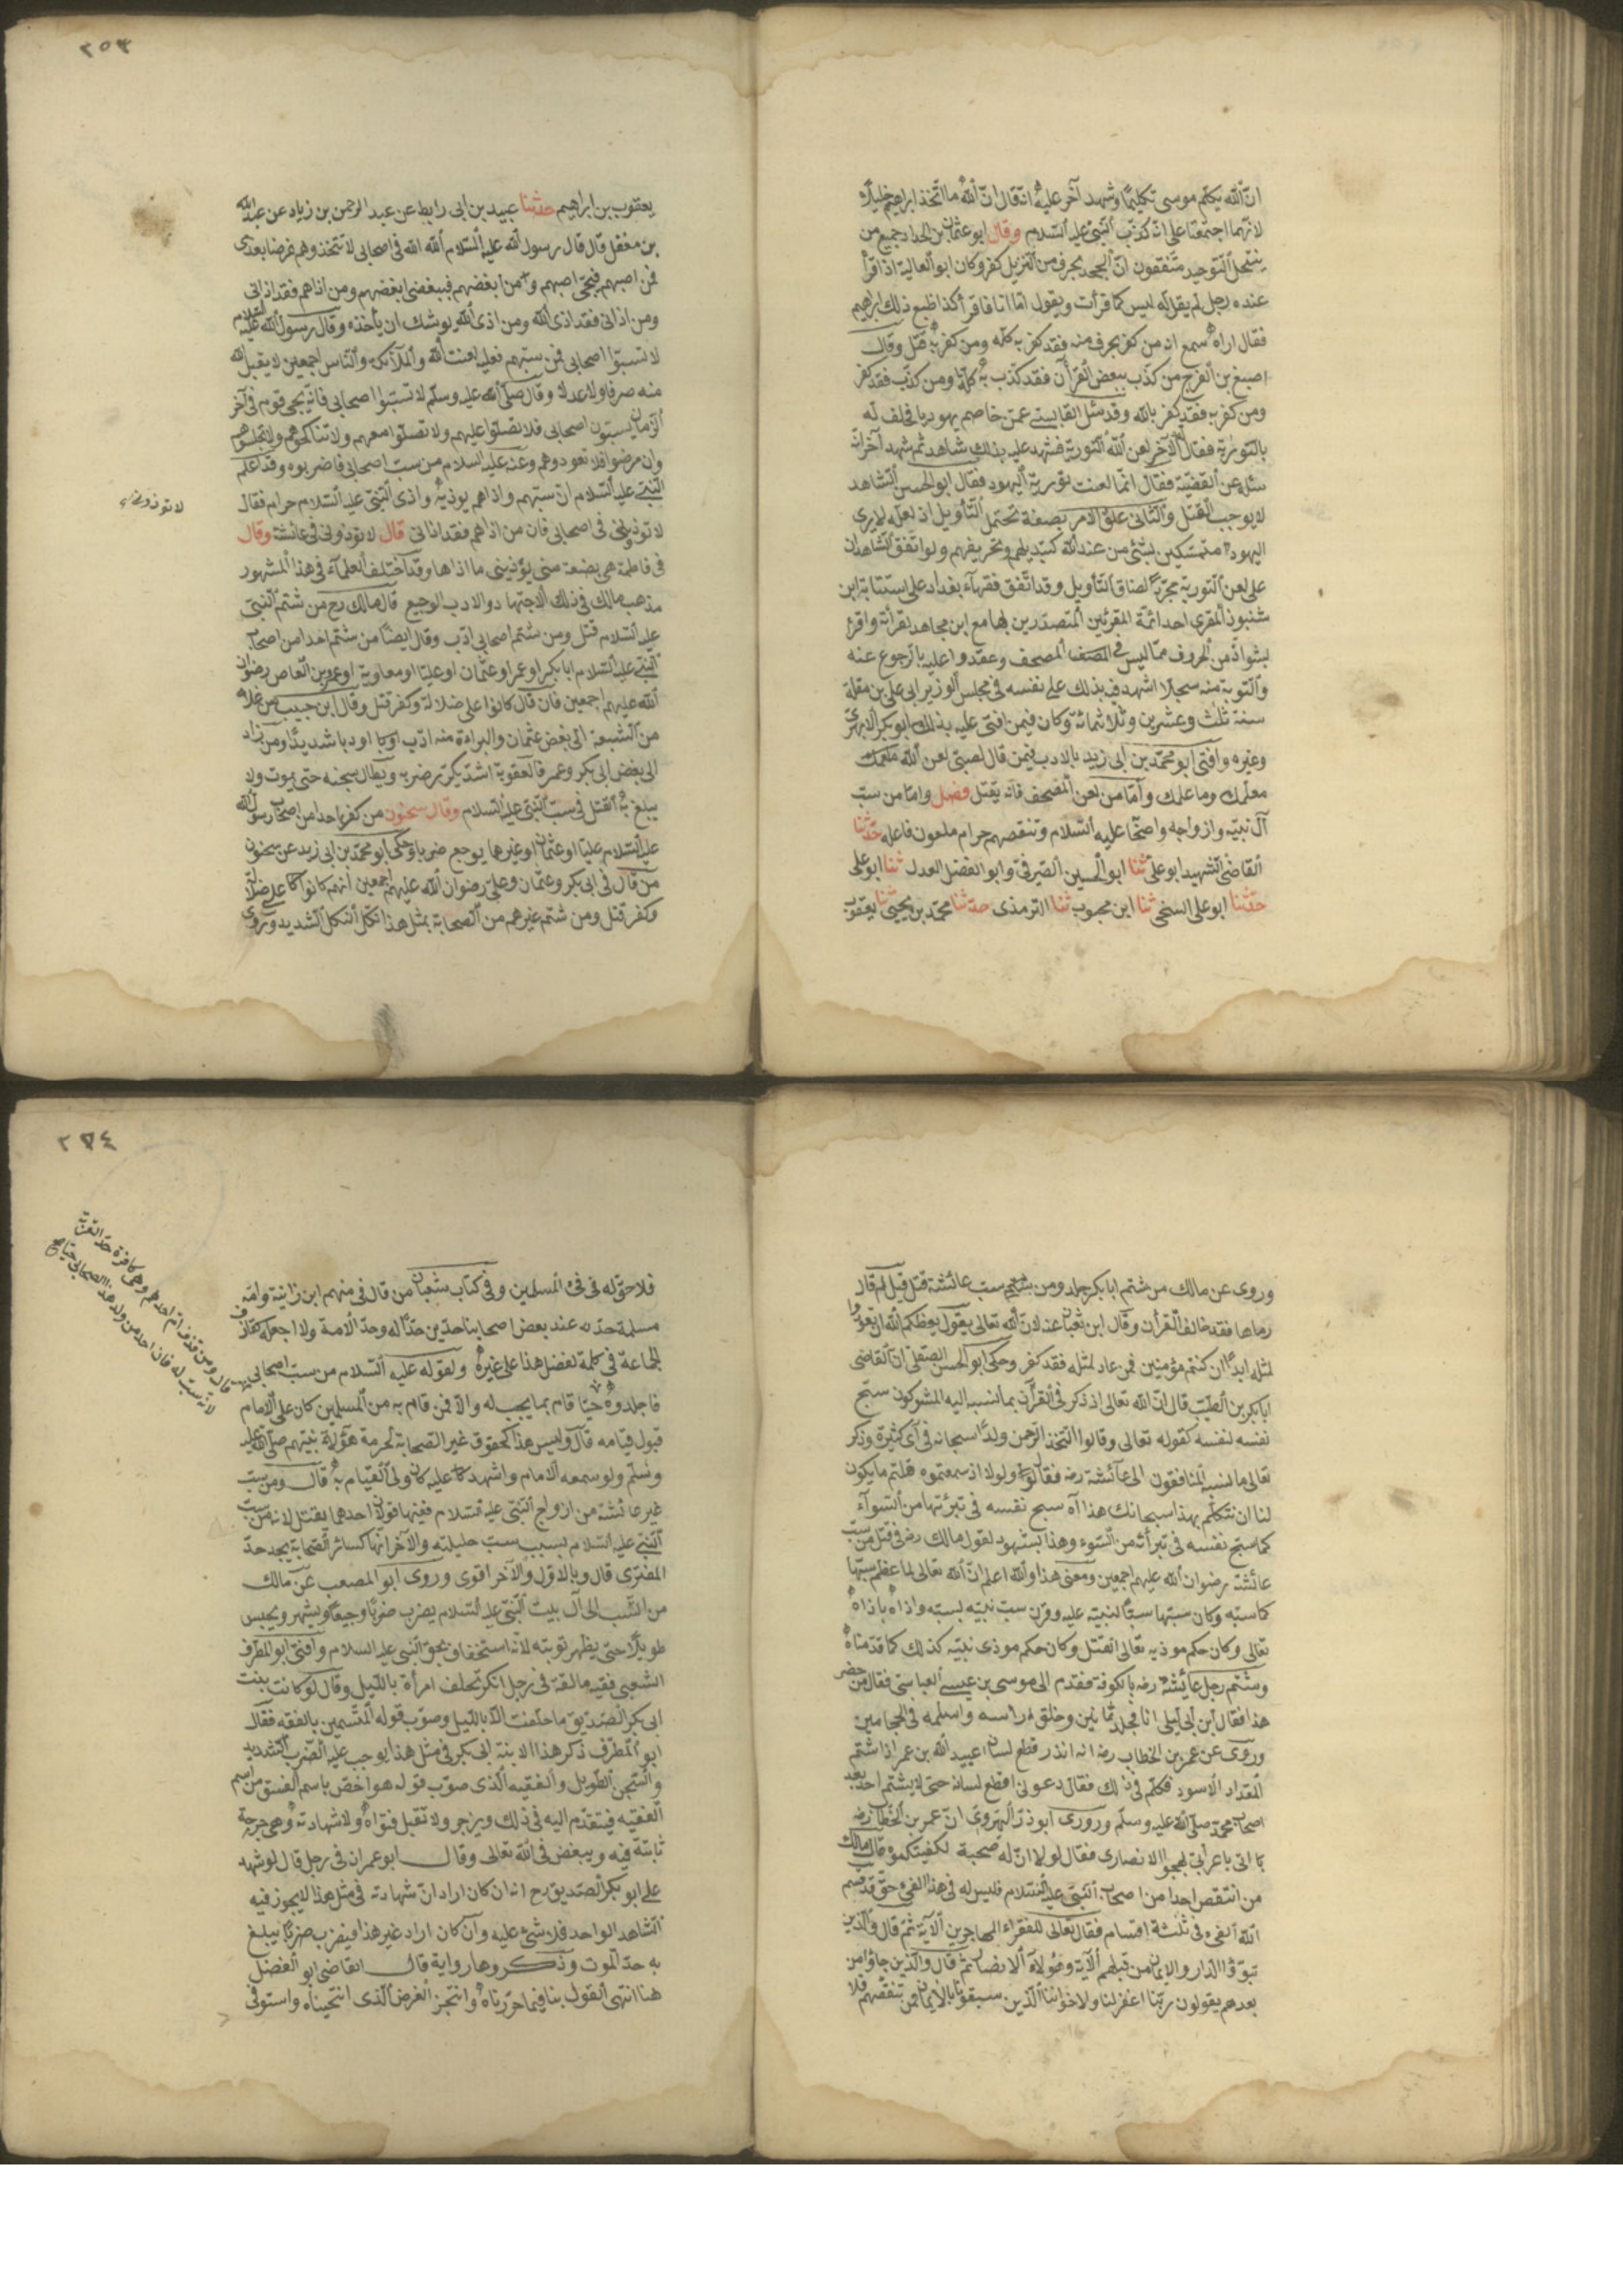 ان الله يكلم موسى تكليما وشهد آخر عليه انه قال ان الله ما اتخذ ابراهيم خليلا
لانهما اجتمعتا على انه كذب النبي عليه السلام وقال ابو عثمان بن الحداد جميع من
ينتحل التوحيد متفقون ان الجحد بحرف من التنزيل كفر وكان ابو العالية اذا قرأ
عنده رجل لم يقل له ليس كما قرأت ويقول اما انا فاقرأ كذا فبلغ ذلك ابراهيم
فقال اراه سمع انه من كفر بحرف منه فقد كفر به كله ومن كفر به قتل وقال
اصبغ بن الفرج من كذب ببعض القرآن فقد كذب به كله ومن كذب فقد كفر
ومن كفر به فقد كفر بالله وقد سئل القابسي عمن خاصم يهوديا فحلف له
بالتورية فقال الآخر لعن الله التورية فشهد عليه بذلك شاهد ثم شهد آخر انه
سئله عن القضية فقال انما لعنت تورية اليهود فقال ابو الحسن الشاهد
لا يوجب القتل والثاني علق الامر بصفة تحتمل التأويل اذ لعله لا يرى
اليهود متمسكين بشئ من عند الله لتبديلهم وتحريفهم ولو اتفق الشاهدان
على لعن التورية مجردا لضاق التأويل وقد اتفق فقهاء بغداد على استتابة ابن
شنبوذ المقرى احد ائمة المقرئين المتصدرين بها مع ابن مجاهد لقرأته واقرئ
بشواذ من الحروف مما ليس في المصحف وعقدوا عليه بالرجوع عنه
والتوبة منه سجلا اشهد فيه بذلك على نفسه في مجلس الوزير ابي على بن مقلة
سنة ثلث وعشرين وثلاثمائة وكان فيمن افتى عليه بذلك ابو بكر الابهرى
وغيره وافتى ابو محمد بن ابي زيد بالادب فيمن قال لصبي لعن الله معلمك
معلمك وما علمك وأما من لعن المصحف فانه يقتل فصل واما من سب
آل نبيه وازواجه واصحابه عليه السلام وتنقصهم حرام ملعون فاعله حدثنا
القاضى الشهيد ابو على ثنا ابو الحسين الصيرفى وابو الفضل العدل ثنا ابو على
حدثنا ابو على السنجى ثنا ابن محبوب ثنا الترمذى حدثنا محمد بن يحيى ثنا يعقوب
٢٥٣
يعقوب بن ابراهيم حدثنا عبيد بن ابى رابط عن عبد الرحمن بن زياد عن عبد الله
بن مغفل قال قال رسول الله عليه السلام الله الله فى اصحابى لا تتخذوهم غرضا بعدى
فمن احبهم فبحبى احبهم ومن ابغضهم فببغضى ابغضهم ومن اذاهم فقد اذانى
ومن اذانى فقد اذى الله ومن اذى الله يوشك ان يأخذه وقال رسول الله عليه السلام
لا تسبوا اصحابى فمن سبهم فعليه لعنت الله والملآئكة والناس اجمعين لا يقبل الله
منه صرفا ولا عدلا وقال صلى الله عليه وسلم لا تسبوا اصحابى فانه يجى قوم فى آخر
الزمان يسبون اصحابى فلا تصلوا عليهم ولا تصلوا معهم ولا تناكحوهم ولا تجالسوهم
وان مرضوا فلا تعودوهم وعنه عليه السلام من سب اصحابى فاضربوه وقد اعلم
النبى عليه السلام ان سبهم واذاهم يوذيه واذى النبى عليه السلام حرام فقال
لا توذونى فى اصحابى فان من اذاهم فقد اذانى قال لا توذونى فى عائشة وقال
فى فاطمة هى بضعة منى يؤذينى ما اذاها وقد اختلف العلماء فى هذا المشهور
مذهب مالك فى ذلك الاجتهاد والادب الوجيع قال مالك رح من شتم النبى
عليه السلام قتل ومن شتم اصحابى ادب وقال ايضا من شتم احدا من اصحاب
النبى عليه السلام ابا بكر او عمر او عثمان او عليا او معاوية او عمرو بن العاص رضوان
الله عليهم اجمعين فان قال كانوا على ضلالة وكفر قتل وقال ابن حبيب من غلا
من الشيعة الى بغض عثمان والبراءة منه ادب ادبا شديدا ومن زاد
الى بغض ابى بكر وعمر فالعقوبة اشد يكرر ضربه ويطال سجنه حتى يموت ولا
يبلغ به القتل فى سب النبى عليه السلام وقال سحنون من كفر احدا من اصحاب رسول الله
عليه السلام عليا او عثمان او غيرها يوجع ضربا وحكى ابو محمد بن ابى زيد عن سحنون
من قال فى ابى بكر وعثمان وعلى رضوان الله عليهم اجمعين انهم كانوا على ضلالة
وكفر قتل ومن شتم غيرهم من الصحابة بمثل هذا نكل النكل الشديد وروى
وروى عن مالك من شتم ابا بكر جلد ومن سب عائشة قتل قيل لم قال
رماها فقد خالف القرأن وقال ابن شعبان عنه لان الله تعالى يقول يعظكم الله ان تعودوا
لمثله ابدا ان كنتم مؤمنين فمن عاد لمثله فقد كفر وحكى ابو الحسن الصقلى ان القاضى
ابا بكر بن الطيب قال ان الله تعالى اذ ذكر فى القرآن بما نسبه اليه المشركون سبح
نفسه لنفسه كقوله تعالى وقالوا اتخذ الرحمن ولدا سبحانه فى آى كثيرة وذكر
تعالى ما نسبه المنافقون الى عآئشة رضه فقال ولولا اذ سمعتموه قلتم ما يكون
لنا ان نتكلم بهذا سبحانك هذا آه سبح نفسه فى تبرئتها من السوآء
كما سبح نفسه فى تبرأته من السوء وهذا يشهد لقول مالك رضه فى قتل من سب
عائشة رضوان الله عليهم اجمعين ومعنى هذا والله اعلم ان الله تعالى لما عظم سبها
كما سبه وكان سبها سبا لنبيه عليه وقرن سب نبيه بسبه واذاه باذاه
تعالى وكان حكم موذيه تعالى القتل وكان حكم موذى نبيه كذلك كما قدمناه
وشتم رجل عائشة رضه بالكوفة فقدم الى موسى بن عيسى العباسى فقال من حضر
هذا فقال ابن ابى ليلى انا فجلد ثمانين وحلق راسه واسلمه فى الحجامين
وروى عن عمر بن الخطاب رضه انه انذر قطع لسان عبيد الله بن عمر اذا شتم
المقداد الاسود فكلم فى ذلك فقال دعونى اقطع لسانه حتى لا يشتم احد بعد
اصحاب محمد صلى الله عليه وسلم وروى ابو ذر الهروى ان عمر بن الخطاب رضه
اتى باعرابى يهجوا الانصارى فقال لولا ان له صحبة لكفيتكموه قال مالك
من انتقص احدا من اصحاب النبى عليه السلام فليس له فى هذا الفى حق قد قسم
الله الفى فى ثلثة اقسام فقال تعالى للفقراء المهاجرين الآية ثم قال والذين
تبوؤا الدار والايمان من قبلهم الآية وهؤلآء الانصار ثم قال والذين جاؤا من
بعدهم يقولون ربنا اغفر لنا ولاخواننا الذين سبقونا بالايمان فمن تنقصهم فلا
فلا حق له فى فئ المسلمين وفى كتاب شعبان من قال فى منهم ابن زانية وامه
مسلمة حد عند بعض اصحابنا حدين حدا له وحد الامه ولا اجعله كقاذف
الجماعة فى كلمة لفضل هذا على غيره ولقوله عليه السلام من سب اصحابى
فاجلدوه حيا قام بما يجب له والا فمن قام به من المسلمين كان على الامام
قبول قيامه قال وليس هذا كحقوق غير الصحابة لحرمة هؤلاء نبيهم صلى الله عليه
وسلم ولو سمعه الامام واشهد عليه كان ولى القيام به قال ومن سب
غير عائشة من ازواج النبى عليه السلام ففيها قولان احدهما يقتل لانه من سب
النبى عليه السلام بسبب سب حليلته والآخر انها كسائر الصحابة يجد حد
المفترى قال وبالاول والآخر اقوى وروى ابو المصعب عن مالك
من انتسب الى آل بيت النبى عليه السلام يضرب ضربا وجيعا ويشهر ويحبس
طويلا حتى يظهر توبته لانه استخفاف بحق النبى عليه السلام وافتى ابو المطرف
الشعبى فقيه مالقة فى رجل انكر تحليف امرأة بالليل وقال لو كانت بنت
ابى بكر الصديق ما حلفت الا بالليل وصوب قوله المتسمين بالفقه فقال
ابو المطرف ذكر هذا الابنة ابى بكر فى مثل هذا يوجب عليه الضرب الشديد
والسجن الطويل والفقيه الذى صوب قوله هو اخص باسم الفسق من اسم
الفقيه فيتقدم اليه فى ذلك ويزجر ولا تقبل فتواه ولا شهادته وهى جرحة
ثابتة فيه ويبغض فى الله تعالى وقال ابو عمران فى رجل قال لو شهد
على ابو بكر الصديق رح انه ان كان اراد ان شهادته فى مثل هذا لا يجوز فيه
الشاهد الواحد فلا شئ عليه وان كان اراد غير هذا فيضرب ضربا يبلغ
به حد الموت وذكروها رواية قال القاضى ابو الفضل
هنا انتهى القول بنا فيما حررناه وانتجز الغرض الذى انتحيناه واستوفى
قال ومن قذف ام احدهم وهى كافرة حد الفرية
لانه سب له فان احد من ولد هذا الصحابى حيا